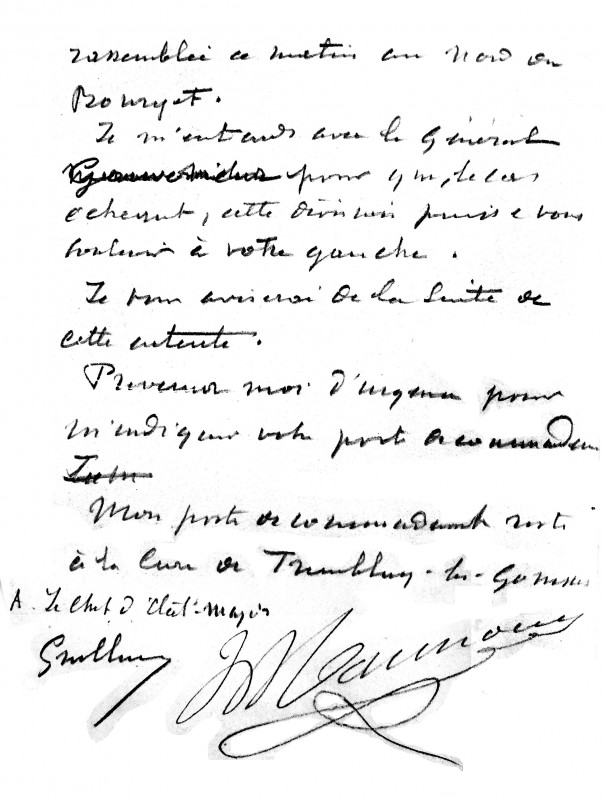 rassemblée ce matin au Nord du
Bourget.
Je m'entends avec le Général
Gouverneur pour que, le cas
échéant, cette division puisse vous
soutenir à votre gauche.
Je vous aviserai de la suite de
cette entente.
Prévenez moi d'urgence pour
m'indiquer votre poste de commandement
Mon poste de commandement reste
à la Cure de Tremblay-les-Gonesse
Le Chef d'Etat-Major